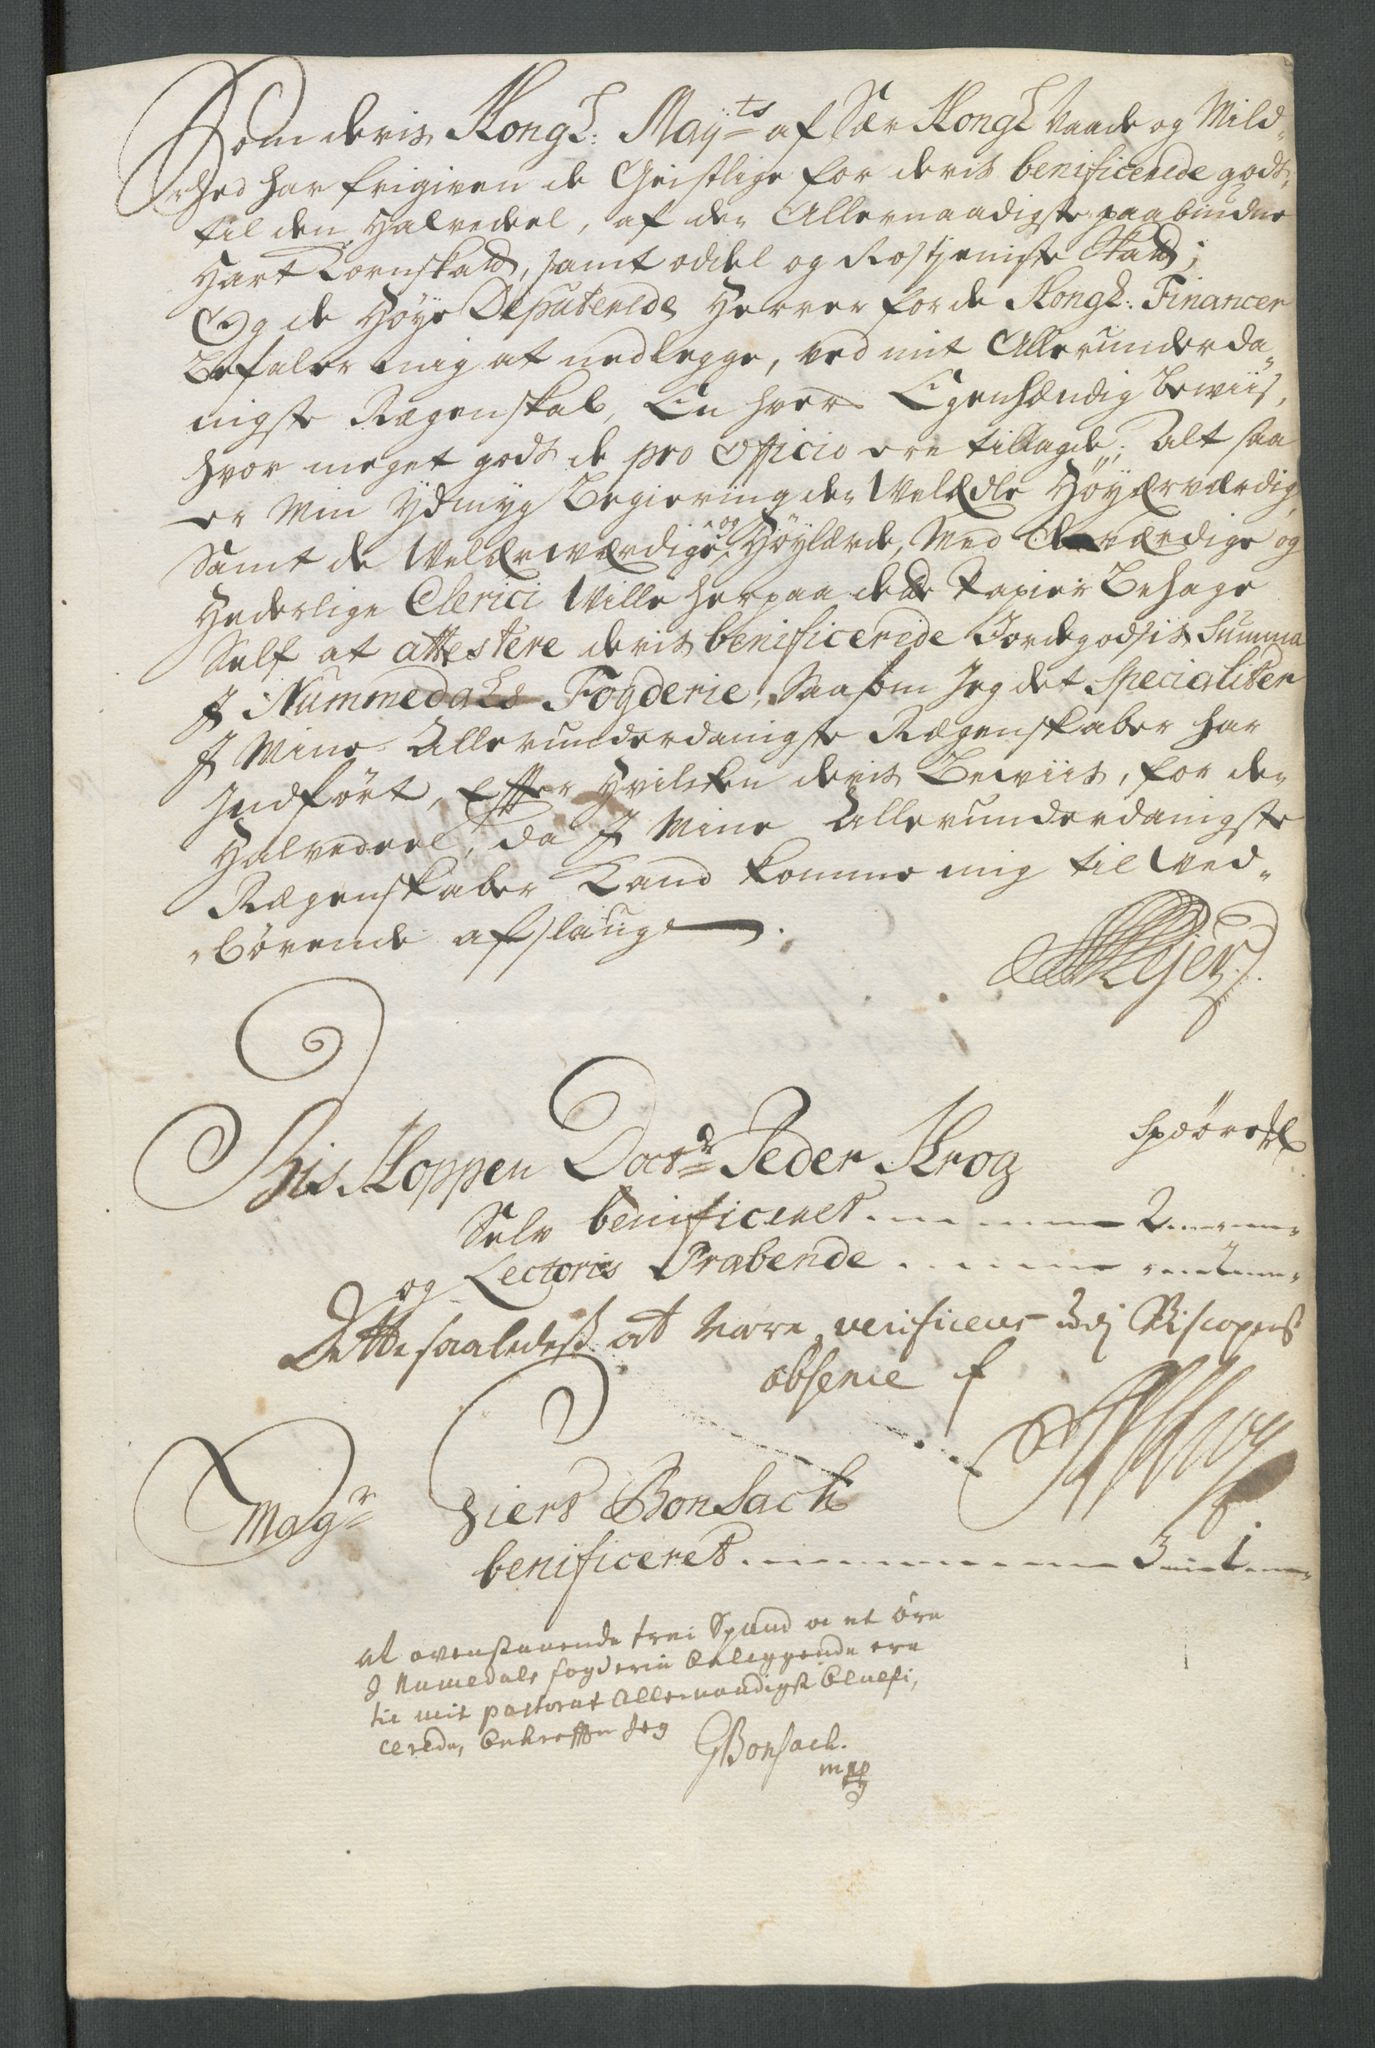 Som deris Kongl: Mayts af Sær Kongl Naade og Mild-
hed har frigiven de Geistlige for deris benificerede gods
til den Halvedeel, af den Allernaadigste paabudne
Hart Kornskatt, samt oddel og Rostieniste Skatt;
Og de Høye Deputerede Herrer for de Kongl: Financer
Befaler mig at nedlegge, ved mit Allerunderda-
nigste Rægenskab, En hver Egenhændig Beviis,
hvor meget gods de pro Officio ere tillagde; Alt saa
er Min Ydmyg Begiering den Velædle Høyærværdig,
Samt de Velærværdige og Høylærde, Med Ærværdige og
Hæderlige Clerici Ville herpaa dette Papier Behage
Self at attestere deris benificerede Jordegodsis Summa
J Nummedals Fogderie, Saasom Jeg det Specialiter
J Mine Allerunderdanigste Rægenskaber har
Indført, Efter Hvilken deris Beviis, for den
Halvedeel, da J Mine Allerunderdanigste
Rægenskaber Kand komme mig til Ved-
børende afslaug.
Spd øre
Biskoppen Doctr Peder Krog
Selv benificeret 2
og Lectoris Præbende
Dette saaledeß at være verificeres udj Biscopens
absence
Magr Giert Bonsach
benificeret 3 1
at ovenstaaende trei Spand oc et øre
J Numedals fogderie beleggende ere
til mit pastorat Allernaadigst benefi,
cerede, bekreffter Jeg
GBonsach.
mpp